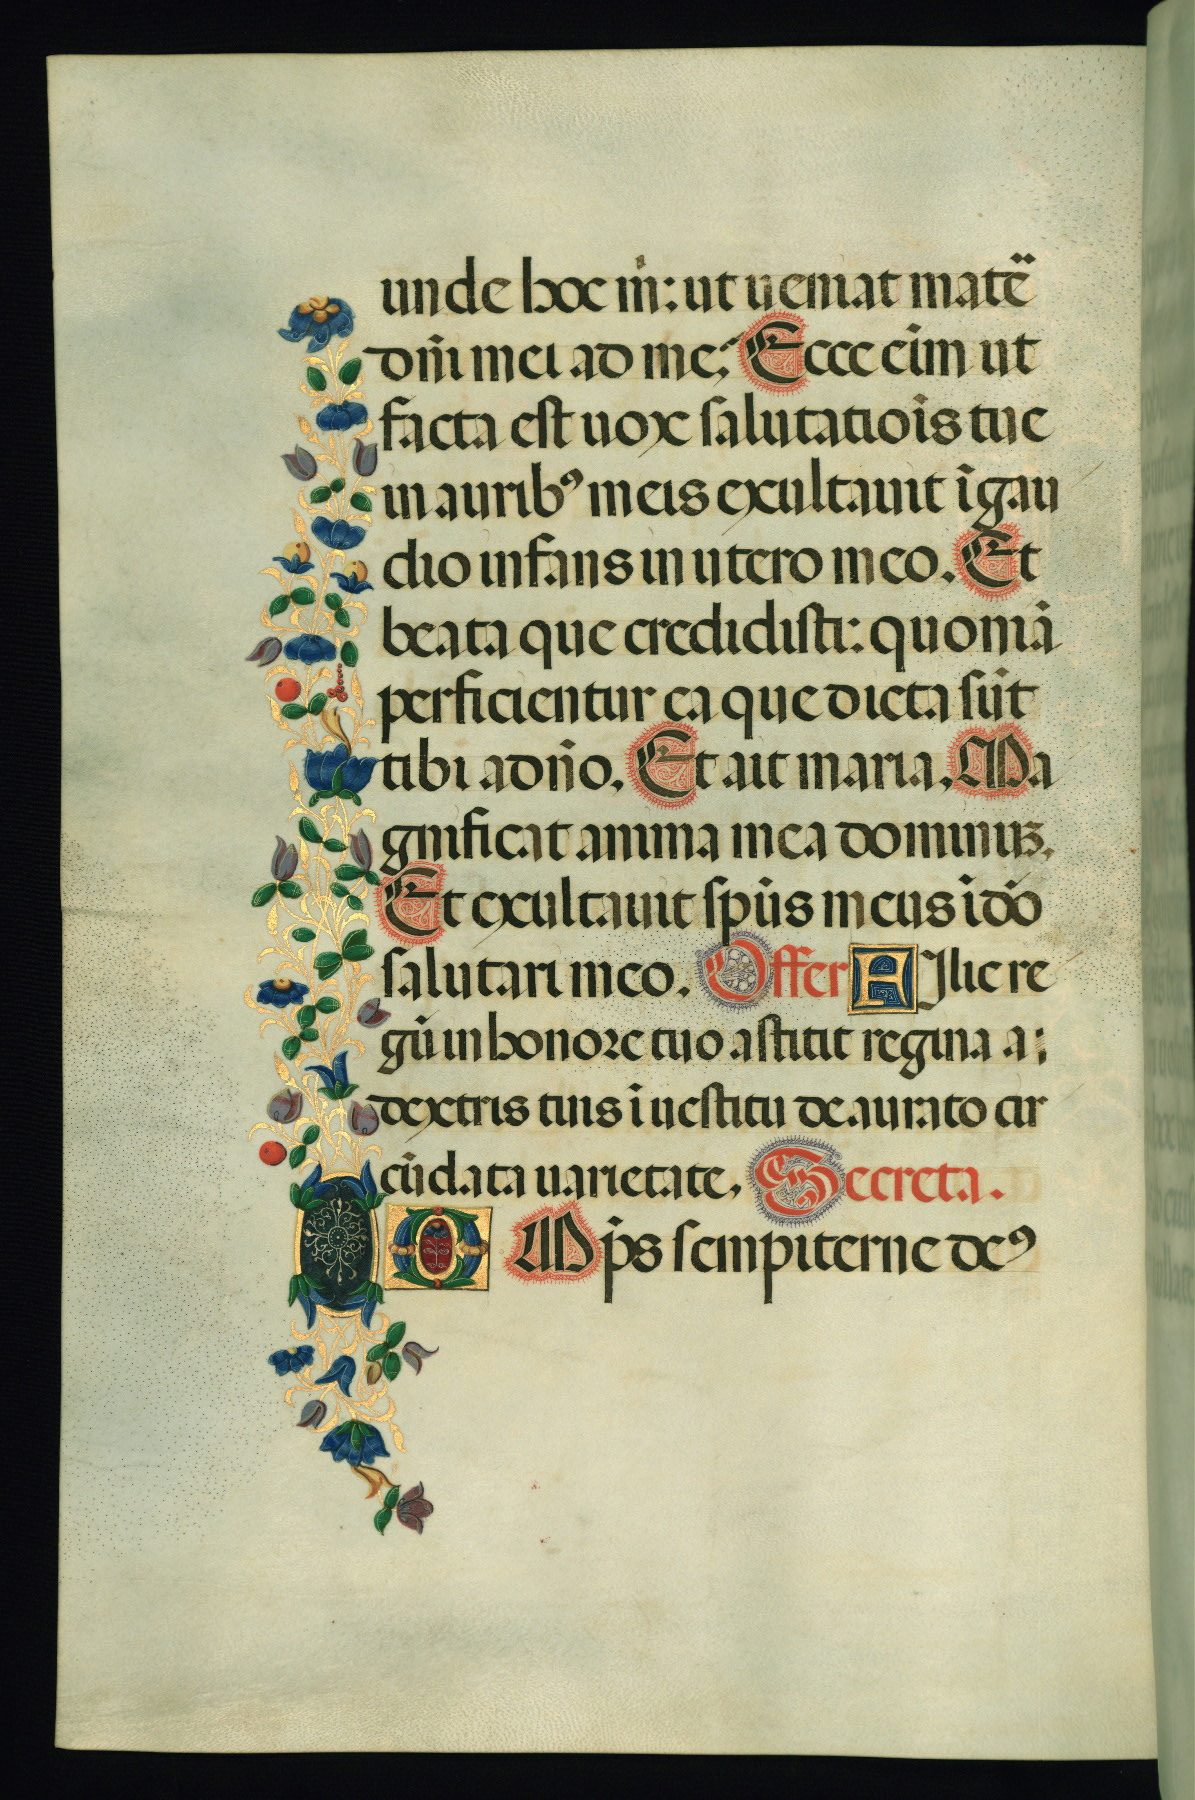 unde hoc m̄: ut ueniat matē
dñi mei ad me? Ecce eīm ut
facta est uox salutatiōis tue
in aurib⁹ meis exultauit ī gau
dio infans in utero meo. Et
beata que credidisti: quoniā
perficientur ea que dicta sūt
tibi a dño. Et ait maria. Ma
gnificat anima mea dominuꝫ.
Et exultauit spūs meus ī dō
salutari meo. Offer Filie re
gū in honore tuo astitit regina a;
dextris tuis ī uestitu deaurato cir
cūdata uarietate. Secreta.
OMp̄s sempiterne de⁹